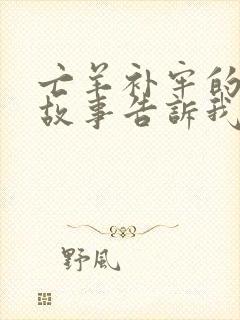 亡羊补牢的
故事告訴我
野風